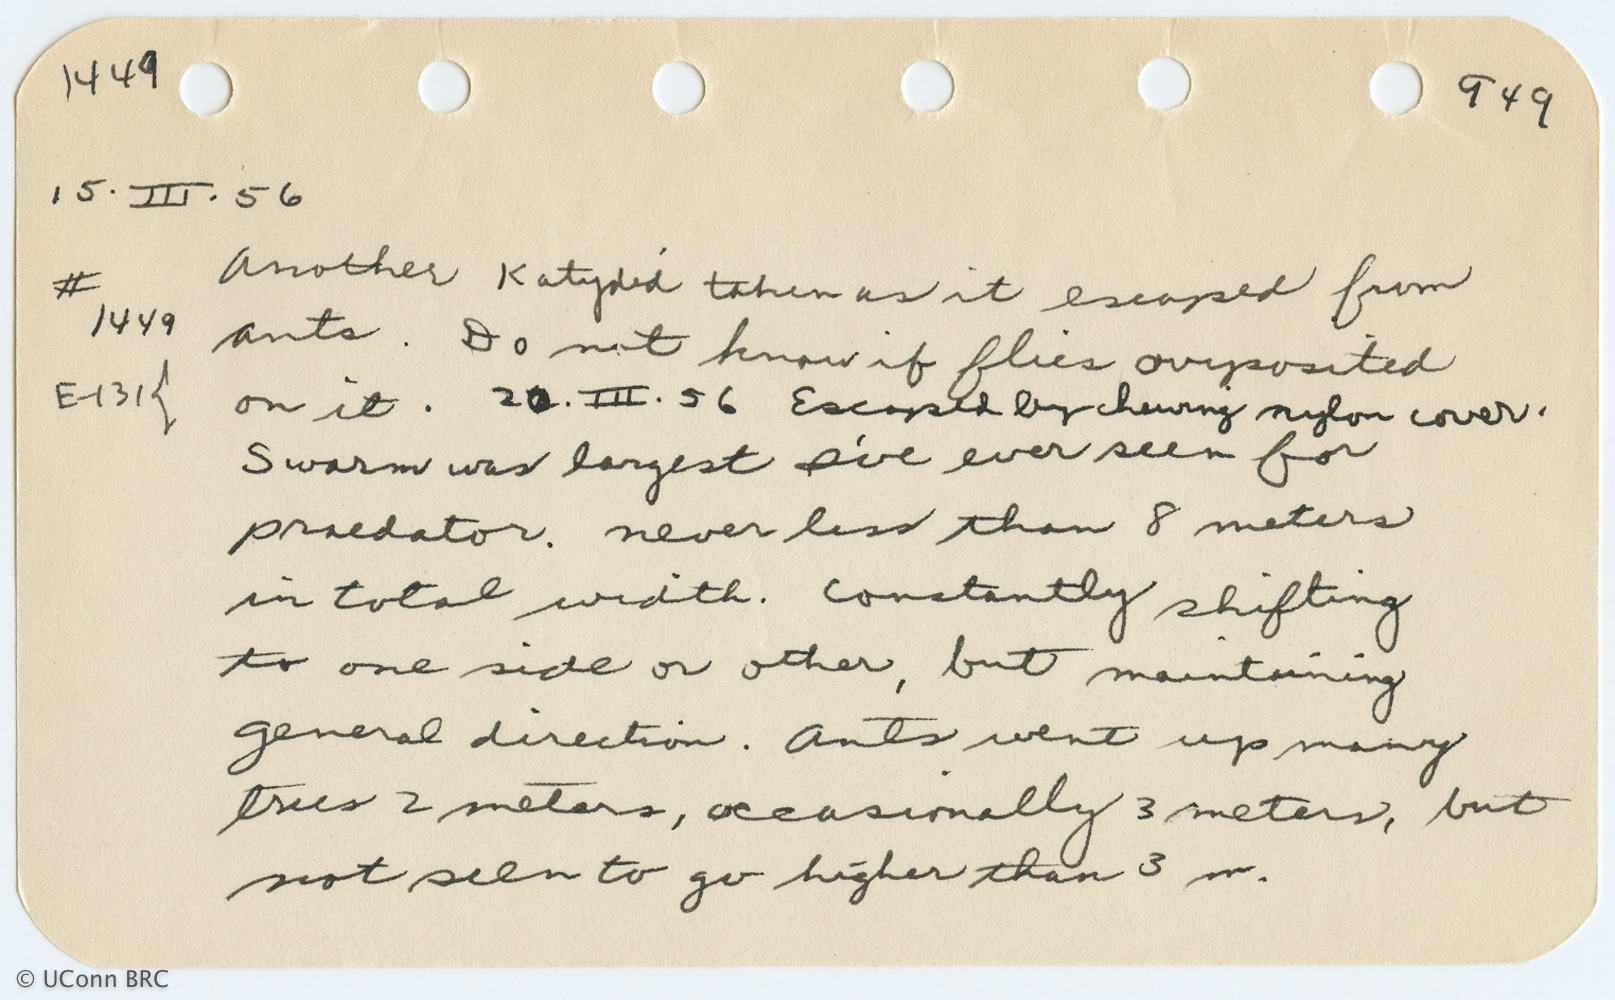 1449
949
15.III.56
# Another Katydid taken as it escaped from
1449 ants. Do not know if flies ovyposited
E-131{ on it. 20.III.56 Escaped by chewing nylon cover.
Swarm was largest I've ever seen for
praedator. never less than 8 meters
in total width. Constantly shifting
to one side or other, but maintaining
general direction. Ants went up many
trees 2 meters, occasionally 3 meters, but
not seen to go higher than 3 m.
© UConn BRC